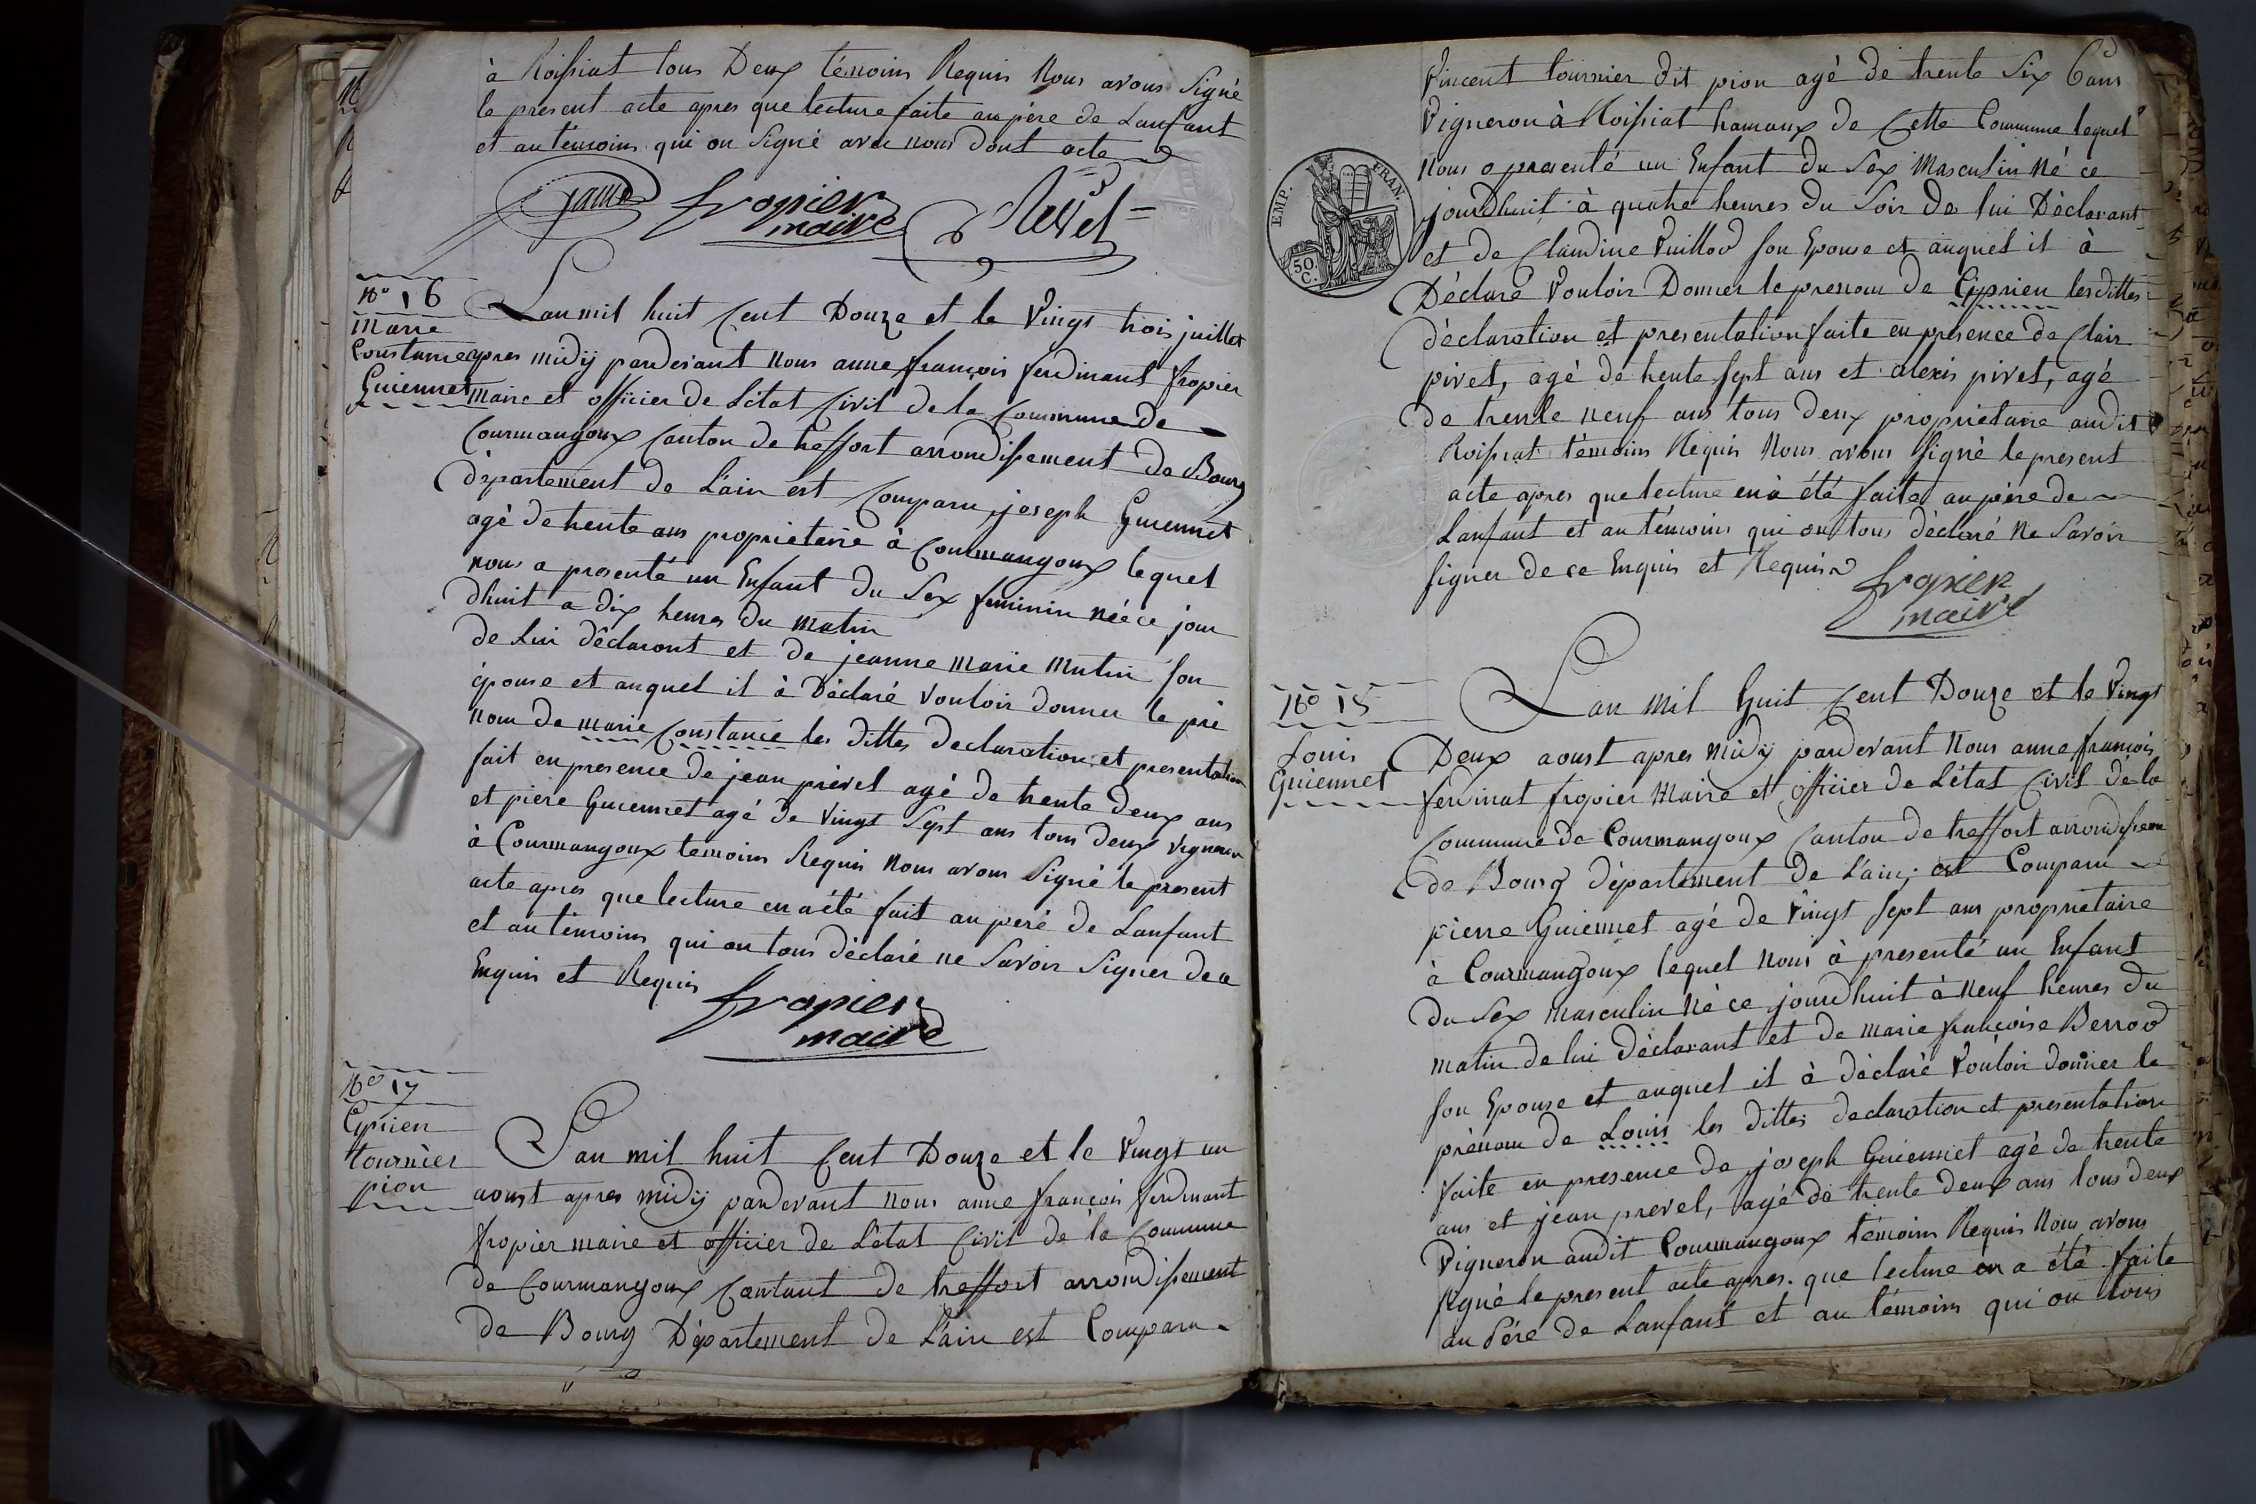 à Roissiat tous Deux témoins Requis Nous avons Signé
le present acte apres que lecture faite au père de Lanfant
et au témoins qui on Signé avec nous dont acte
fropier
maire
Revel
No 16
Marie
Constance
Guiennet
Lan mil huit Cent Douze et le Vingt trois juillet
apres midy pardevant nous anne françois ferdinant fropier
maire et officier de Létat Civil de la Commune de
Courmangoux Canton de treffort arrondissement de Bourg
département de Lain est Comparu joseph Guiennet
agé de trente ans proprietaire à Courmangoux lequel
nous a presenté un Enfant du Sex feminin née ce jour
dhuit a dix heures du matin
de Lui déclarant et de jeanne marie Mutin Son
épouse et auquel il à Déclaré Vouloir donner le pré
nom de marie Constance les dittes declaration et presentation
fait en presence de jean prével agé de trente deux ans
et piere Guiennet agé de Vingt Sept ans tous deux Vigneron
à Courmangoux temoins Requis nous avons Signé le present
acte apres que lecture en a été fait au peré de Lanfant
et au témoins qui on tous déclaré ne Savoir Signer de ce
Enquis et Requis
fropier
maire
No 17
Cyprien
tournier
pion
Lan mil huit Cent Douze et le Vingt un
aoust apres midy pardevant nous anne françois ferdinant
fropier maire et officier de Létat Civil de la Commune
de Courmangoux Cantont de treffort arrondissement
de Bourg Département de Lain est Comparu
Vincent tournier dit pion agé de trente Six ans
Vigneron à Roissiat hamaux de Cette Commune lequel
nous a presenté un Enfant du Sex Masculin Né ce
jourdhuit à quatre heures du Soir de lui Déclarant
et de Claudine Vuillod Son Epouse et auquel il à
Déclaré Vouloir Donner le prenom de Cyprien lesdittes
déclaration et presentation faite en presence de Clair
pivet, agé de trente Sept ans et alexis pivet, agé
de trente neuf ans tous deux propriétaire audit
Roissiat témoins Requis Nous avons Signé le present
acte apres que lecture en à été faite au père de
Lanfant et au témoins qui on tous déclaré Ne Savoir
Signer de ce Enquis et Requis
fropier
maire
EMP. FRAN.
50
C.
No 15
Louis
Guiennet
Lan Mil Huit Cent Douze et le Vingt
Deux aoust apres Midy pardevant Nous anne françois
ferdinat fropier Maire et officier de Létat Civil de la
Commune de Courmangoux Canton de treffort arrondisseme
de Bourg département de Lain; est Comparu
pierre Guiennet agé de Vingt Sept ans propriétaire
à Courmangoux lequel Nous à presenté un Enfant
du Sex Masculin Né ce jourdhuit à Neuf heures du
matin de lui déclarant et de marie françoise Berrod
Son Epouse et auquel il à déclaré Vouloir donner le
prénom de Louis les dittes declaration et presentation
faite en presence de joseph Guiennet agé de trente
ans et jean prevel, agé de trente deux ans tous deux
Vigneron audit Courmangoux témoins Requis Nous avons
Signé le present acte apres que lecture en a été faite
au Pére de Lanfant et au témoins qui on tous